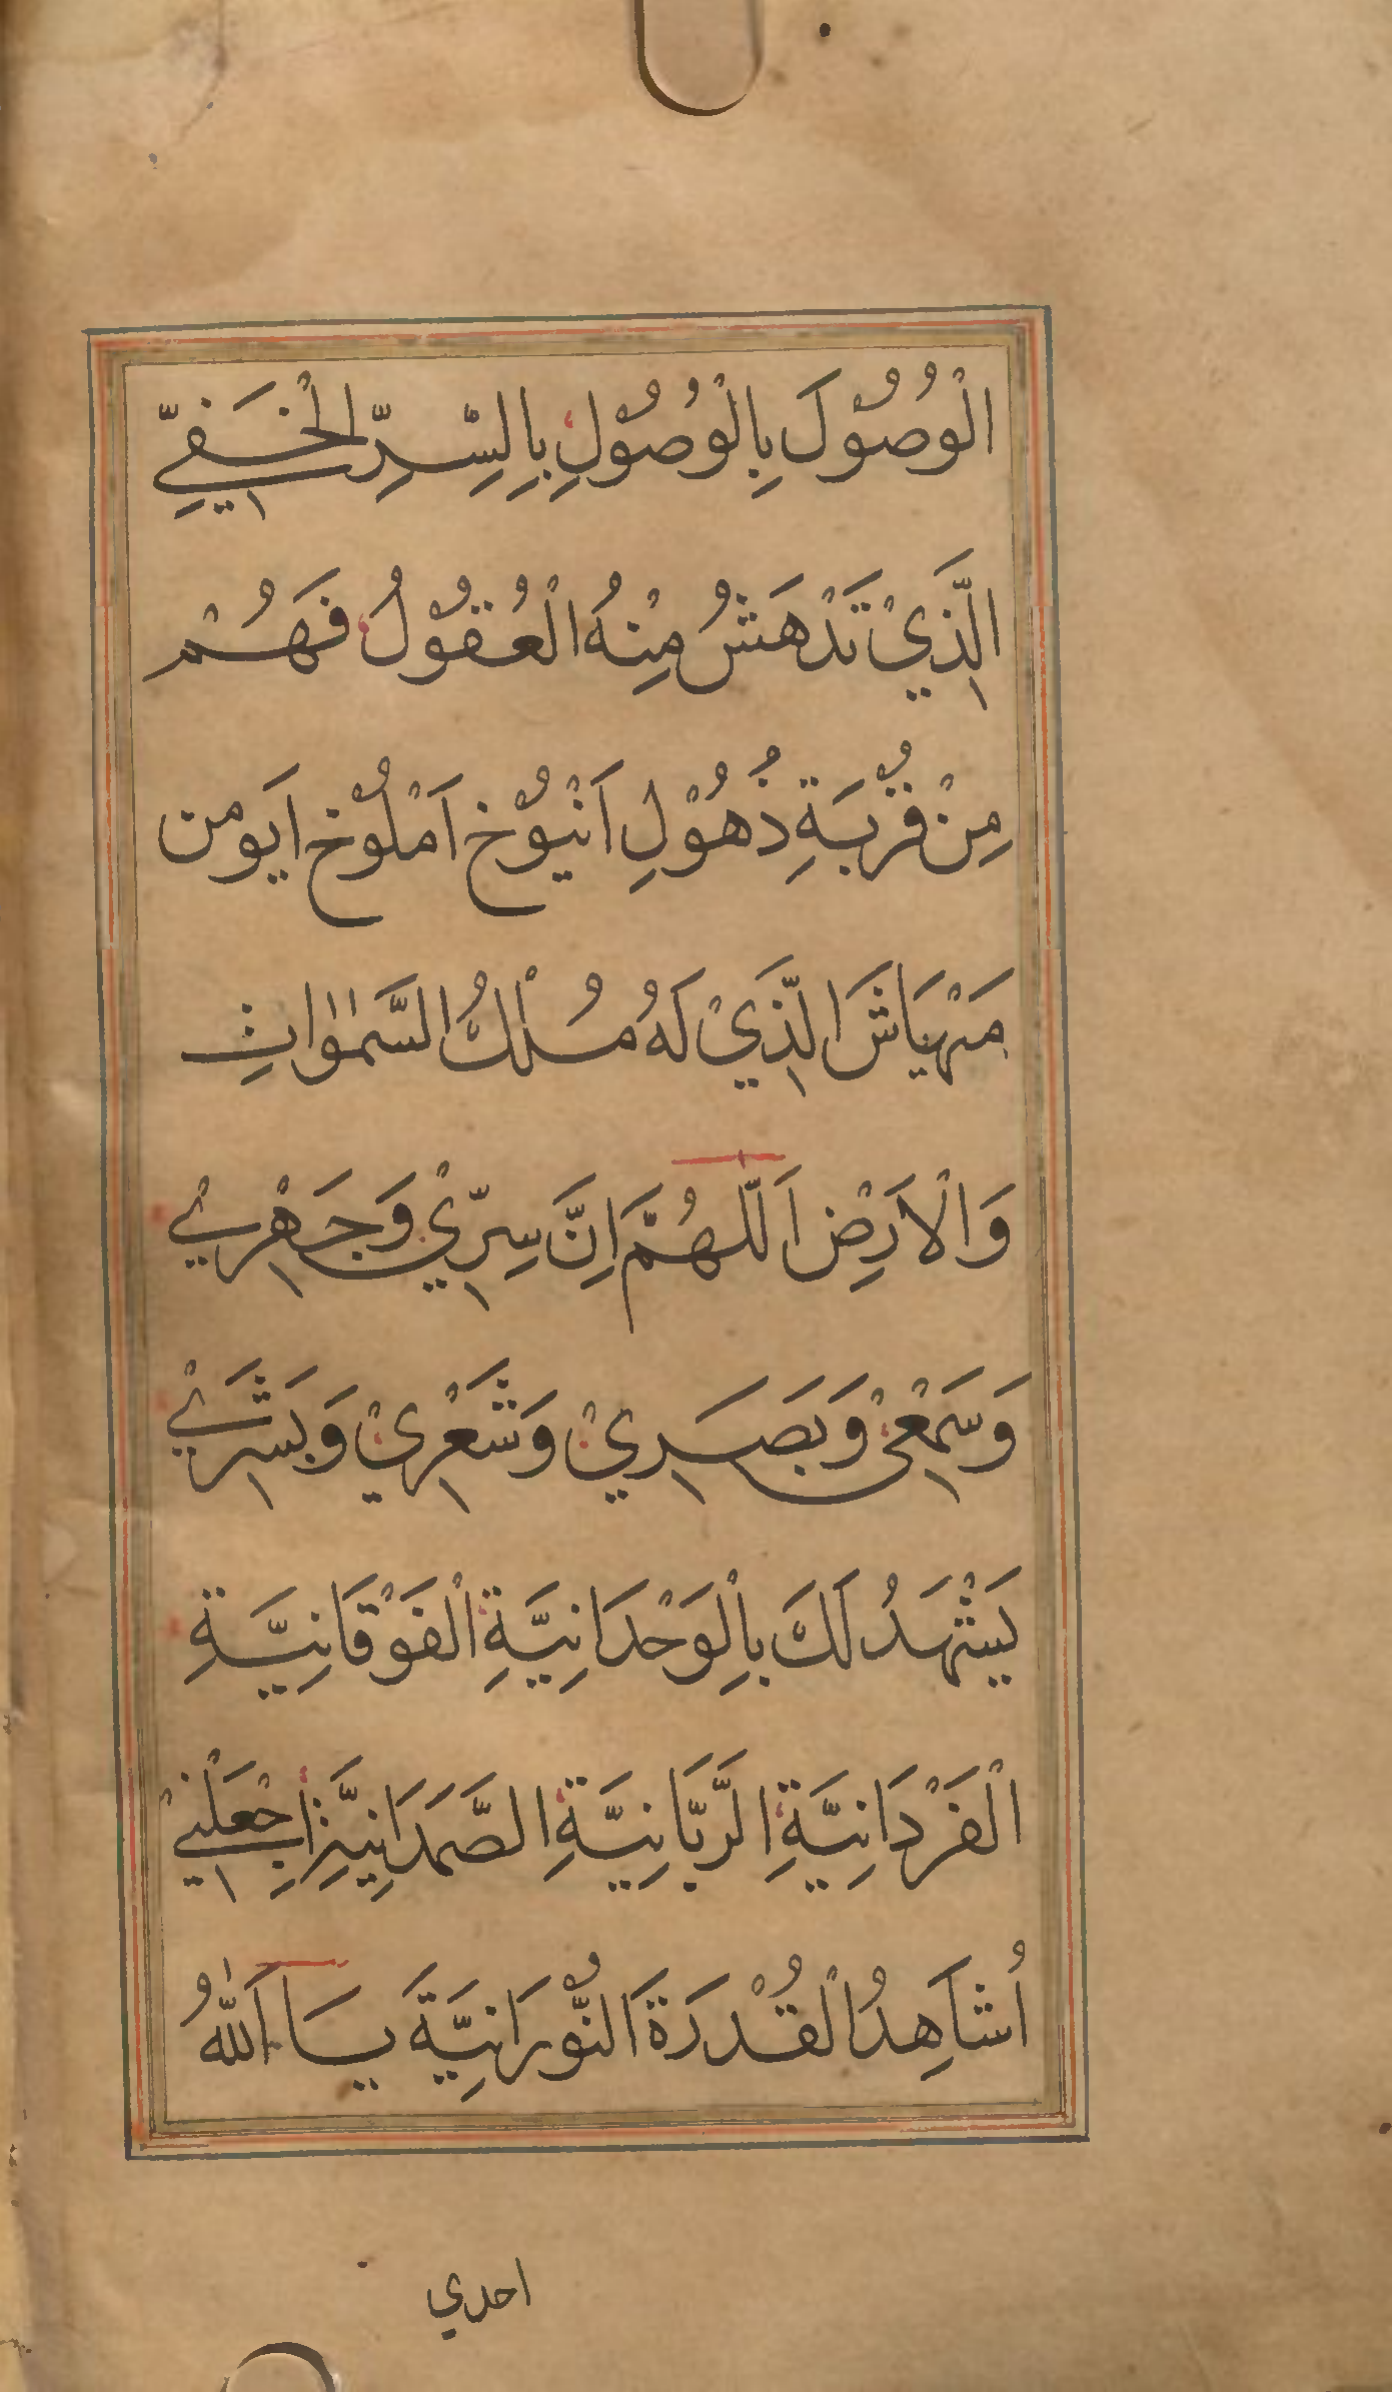 الْوُصُوْلَ بِالْوُصُوْلِ بِالسِّرِّ الْخَفِيِّ
الَّذِيْ تَدْهَشُ مِنْهُ الْعُقُوْلُ فَهُمْ
مِنْ قُرْبَةِ ذُهُوْلِ اَنْيُوْخ اَمْلُوْخ اَيومن
مَهْيَاشَ الَّذِيْ لَهُ مُلْكُ السَّمٰوٰاتِ
وَالْاَرْضِ اَللّٰهُمَّ اِنَّ سِرِّيْ وَجَهْرِيْ
وَسَمْعِيْ وَبَصَرِيْ وَشَعْرِيْ وَبَشَرِيْ
يَشْهَدُ لَكَ بِالْوَحْدَانِيَّةِ الْفَوْقَانِيَّةِ
الْفَرْدَانِيَّةِ الرَّبَّانِيَّةِ الصَّمَدَانِيَّةِ اِجْعَلْنِيْ
اُشَاهِدُ الْقُدْرَةَ النُّوْرَانِيَّةَ يَا اَللّٰهُ
احدي